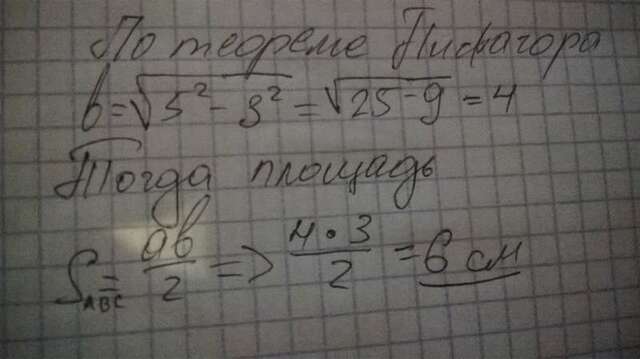 По теореме Пифагора
b=√5²-3²=√25-9=4
Тогда площадь
S_ABC=ab/2=>4·3/2=6 см